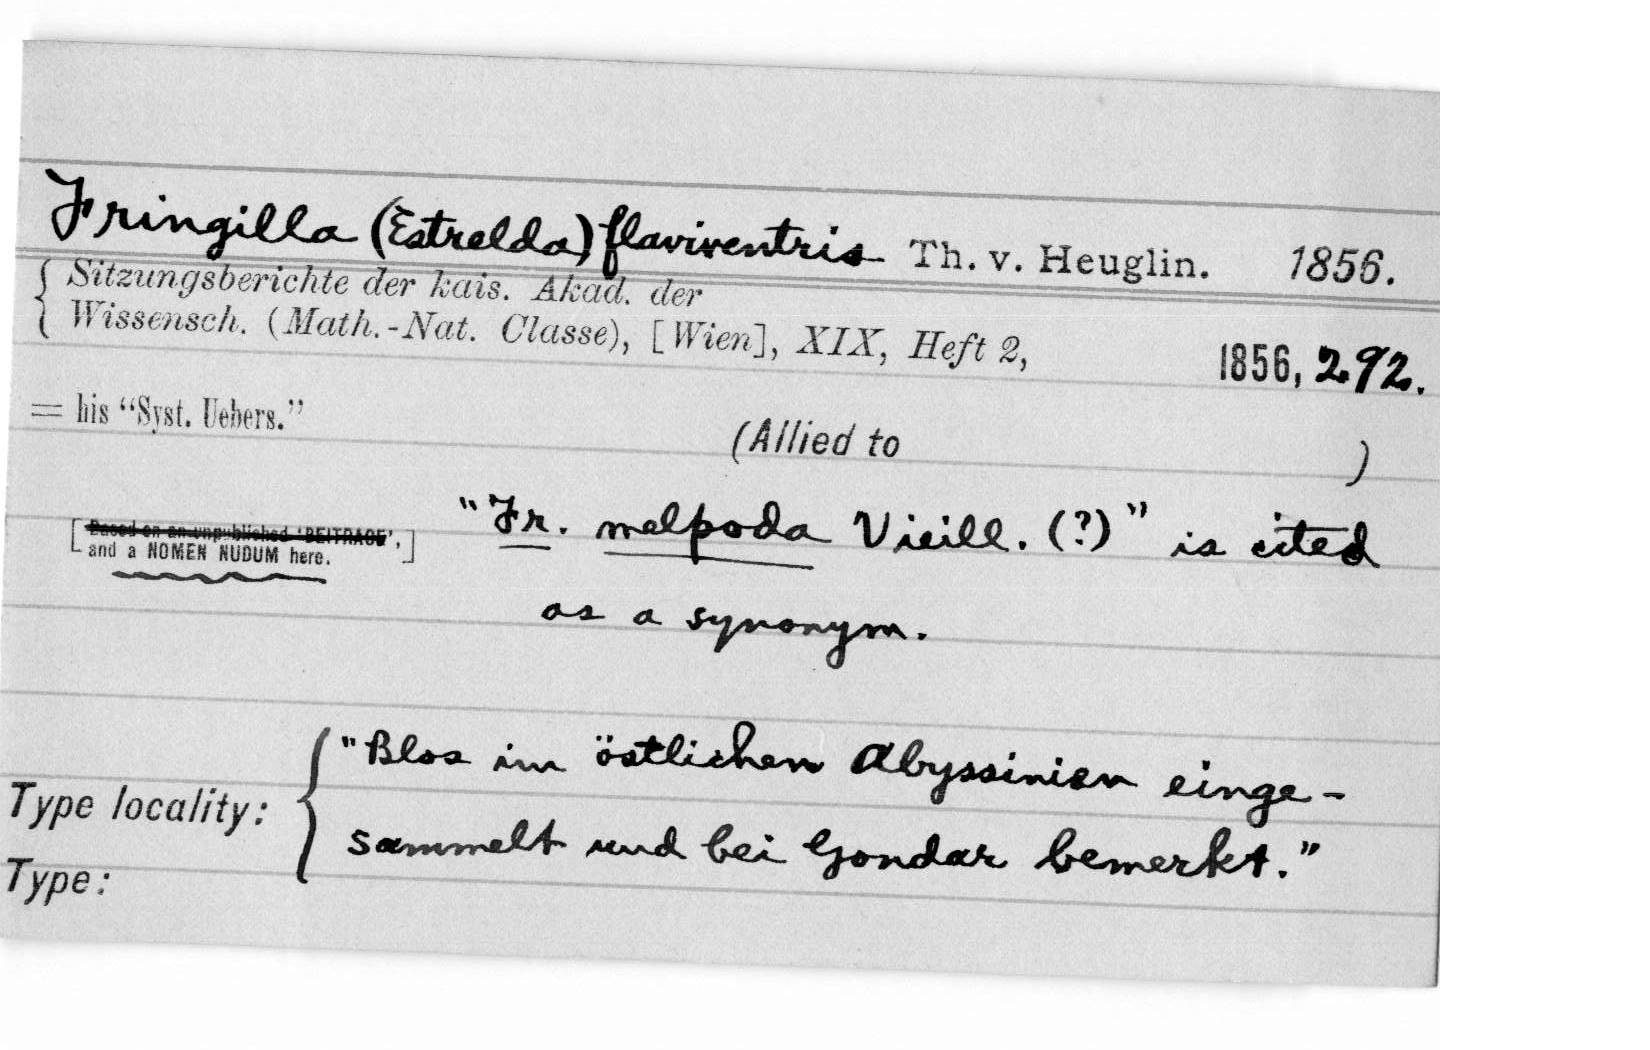 Fringilla (Estrelda) flaviventris Th. v. Heuglin. 1856.
Sitzungsberichte der kais. Akad. der
Wissensch. (Math.-Nat. Classe), [Wien], XIX, Heft 2, 1856, 292.
= his “Syst. Uebers.”
(Allied to )
[Based on an unpublished 'BEITRAGE',
and a NOMEN NUDUM here.]
"Fr. melpoda Vieill. (?)" is cited
as a synonym.
Type locality: "Blos im östlichen Abyssinien einge-
sammelt und bei Gondar bemerkt."
Type: